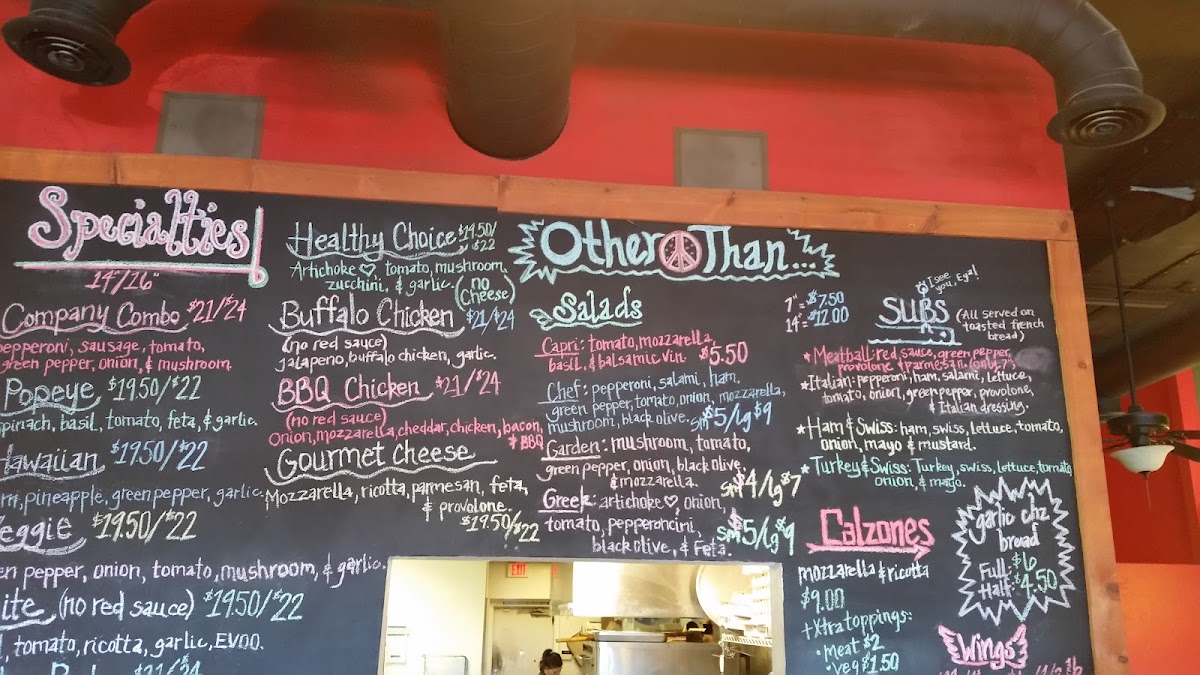 Specialties
14"/16"
Company Combo $21/$24
pepperoni, sausage, tomato,
green pepper, onion, & mushroom.
Popeye $19.50/$22
spinach, basil, tomato, feta, & garlic.
Hawaiian $19.50/$22
pineapple, green pepper, garlic.
Veggie $19.50/$22
pepper, onion, tomato, mushroom, & garlic.
(no red sauce) $19.50/$22
tomato, ricotta, garlic, EVOO.
$21/$24
Healthy Choice $19.50/
$22
Artichoke ♡, tomato, mushroom,
zucchini, & garlic. (no
Cheese)
Buffalo Chicken $21/$24
(no red sauce)
Jalapeno, buffalo chicken, garlic.
BBQ Chicken $21/$24
(no red sauce)
Onion, mozzarella, cheddar, chicken, bacon,
& BBQ
Gourmet cheese
Mozzarella, ricotta, parmesan, feta,
& provolone.
$19.50/$22
Other Than...
Salads
Capri: tomato, mozzarella,
basil, & balsamic vin. $5.50
Chef: pepperoni, salami, ham,
green pepper, tomato, onion, mozzarella,
mushroom, black olive. sm $5/lg $9
Garden: mushroom, tomato,
green pepper, onion, black olive,
& mozzarella. sm $4/lg $7
Greek: artichoke ♡, onion,
tomato, pepperoncini,
black olive, & Feta. sm $5/lg $9
7" = $7.50
14" = $12.00
I see
you, Ey²!
SUBS (All served on
toasted french
bread)
★ Meatball: red sauce, green pepper,
provolone & parmesan.
★ Italian: pepperoni, ham, salami, lettuce,
tomato, onion, green pepper, provolone,
& Italian dressing.
★ Ham & Swiss: ham, swiss, lettuce, tomato,
onion, mayo & mustard.
★ Turkey & Swiss: Turkey, swiss, lettuce, tomato
onion, & mayo.
Calzones
mozzarella & ricotta
$9.00
+ Xtra toppings:
• Meat $2
• Veg $1.50
garlic chz
bread
Full: $6
Half: $4.50
Wings
EXIT